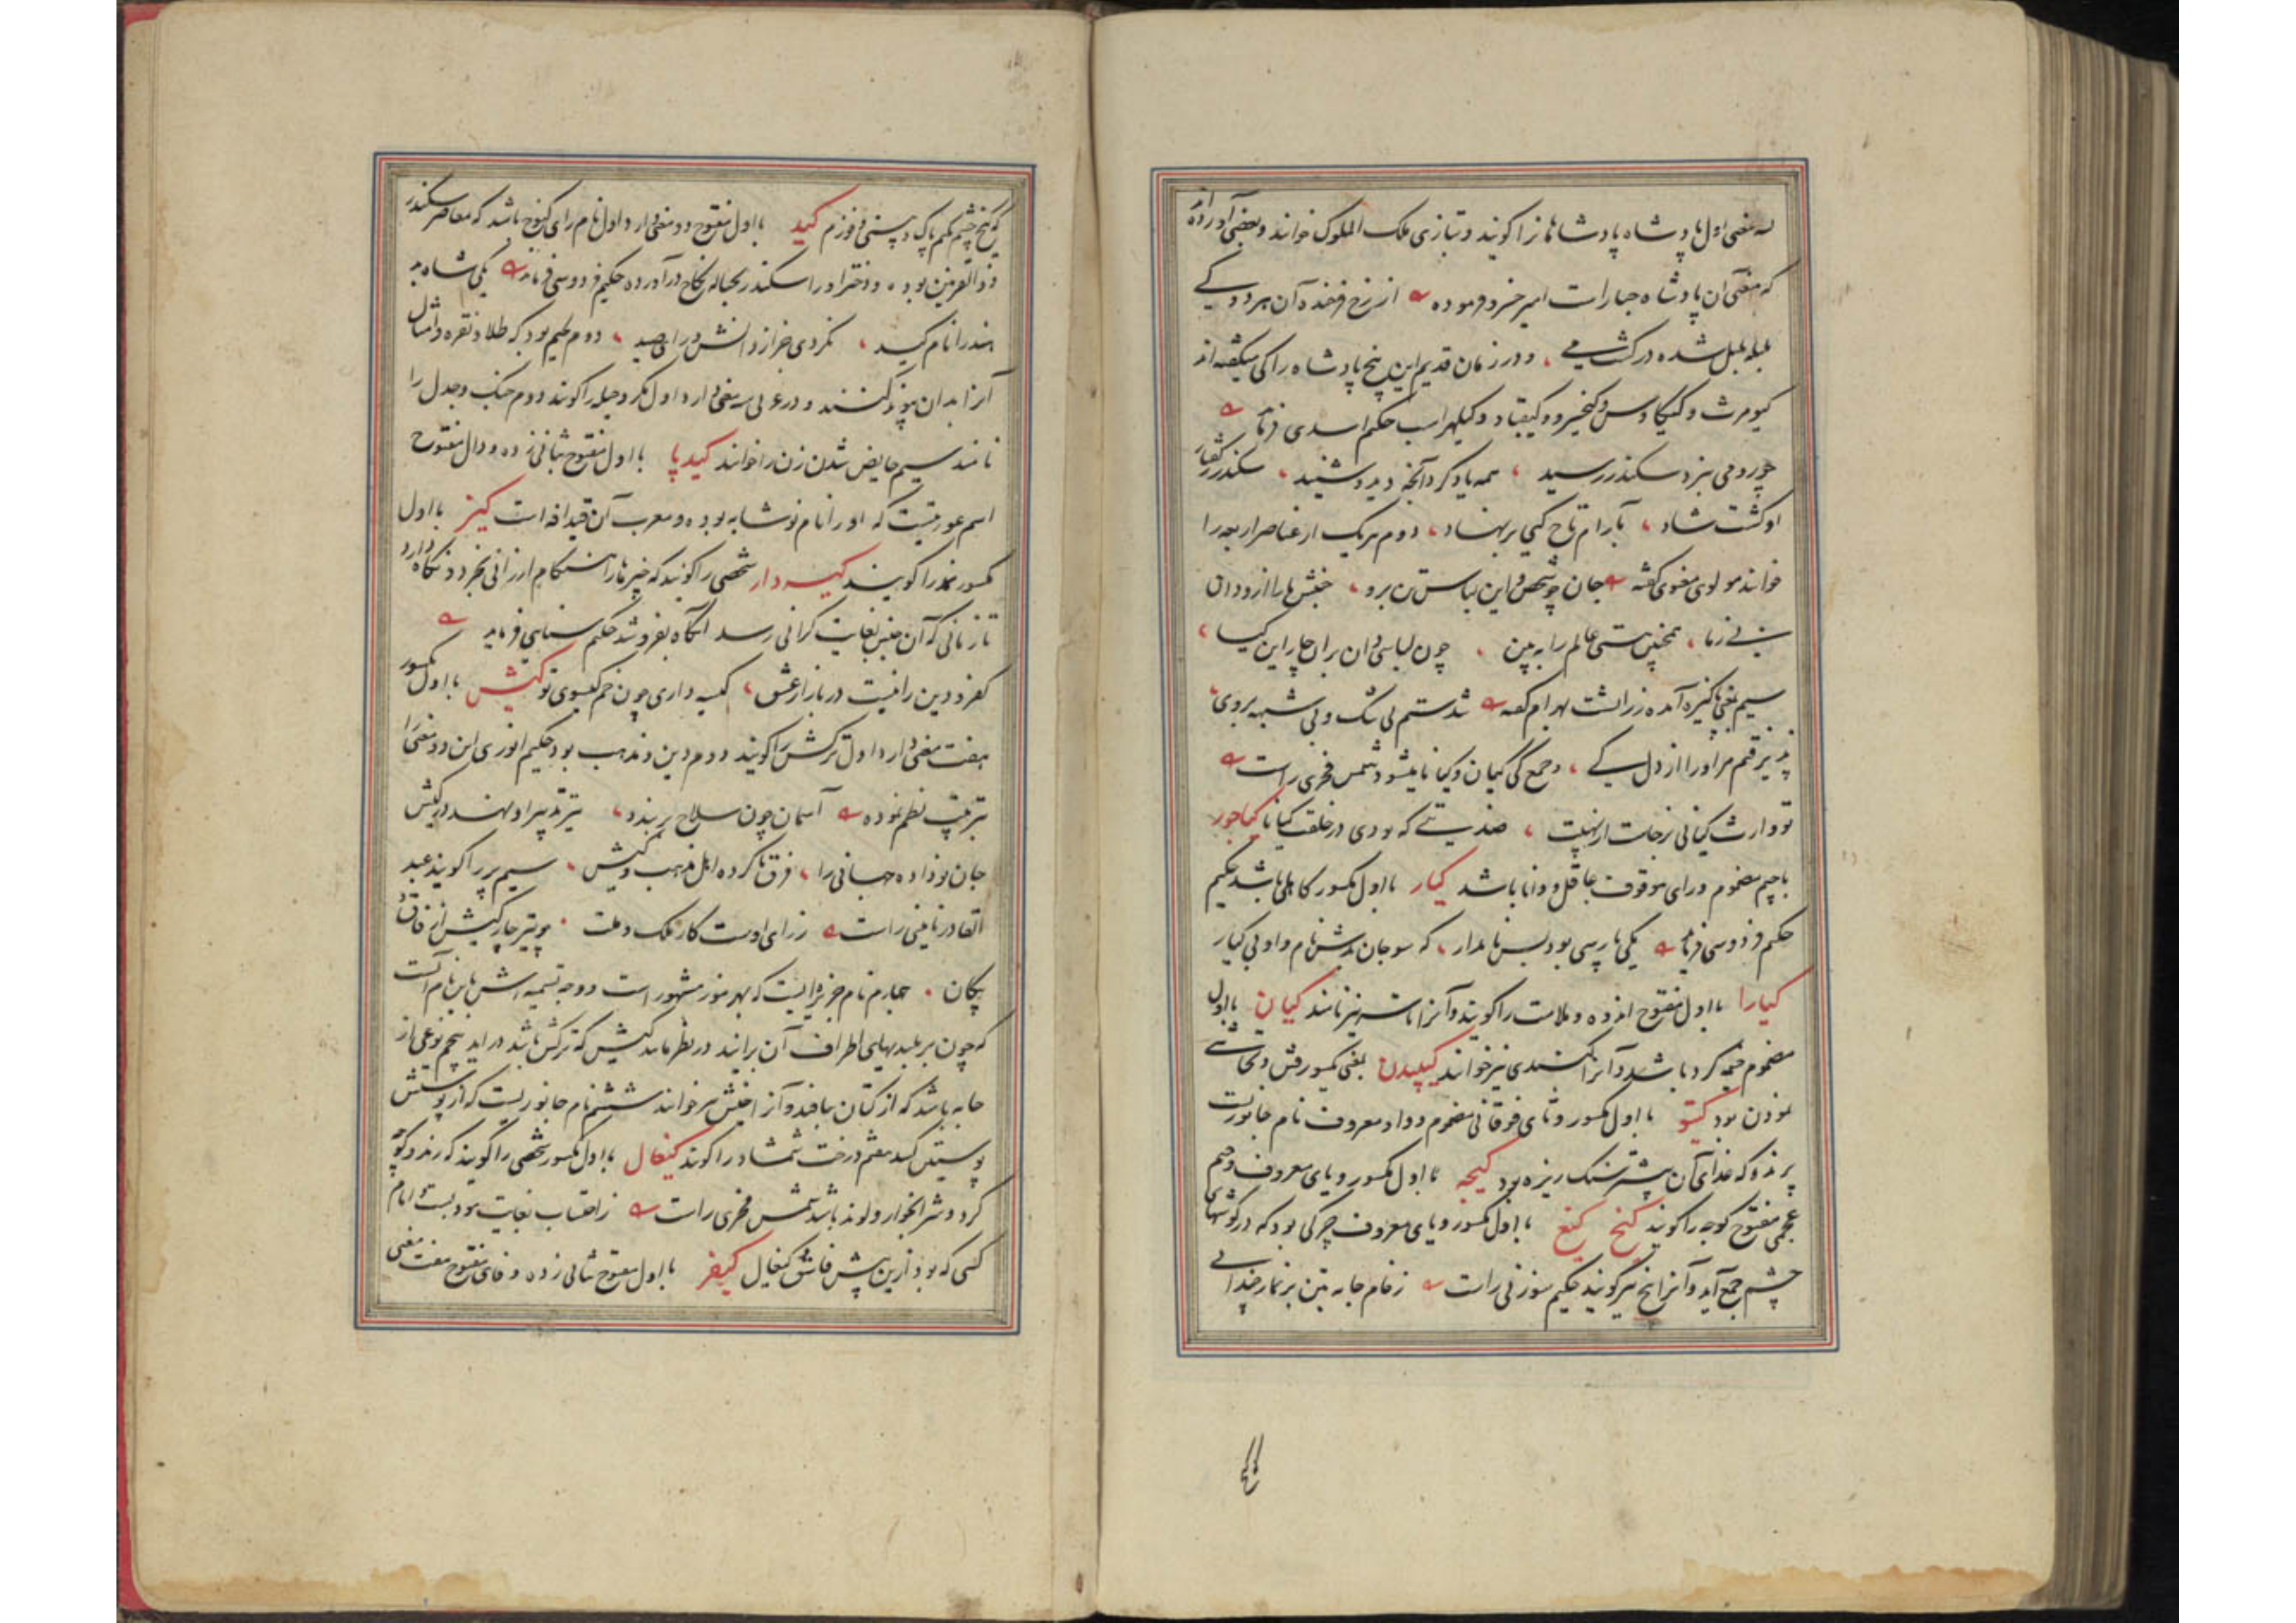 سه معنی اول پادشاه پادشاهانرا گویند و بتازی ملک الملوک خوانند و بعضی آورده اند
که معنی آن پادشاه جبار است امیر خسرو فرموده از رخ فرخنده آن هر دو کی
بلبله بلبل شده در گشت می و در زمان قدیم این پنج پادشاه را کی میگفته اند
کیومرث و کیکاوس و کیخسرو و کیقباد و کیلهراسب حکیم اسدی فرماید
چو رومی بنزد سکندر رسید همه یاد کرد آنچه دید و شنید سکندر ز گفتار
او گشت شاد بآرام تاج کیی بر نهاد دوم هر یک از عناصر اربعه را
خوانند مولوی معنوی گفته جان چو شخص و این لباس تن برو جنبش ما را ازو دان
نی ز ما همچنین هستی عالم را ببین چون لباسی دان بران چار این کیا
سیم بمعنی پاکیزه آمده زراتشت بهرام گفته شدستم بی شک و بی شبهه بروی
پذیرفتم مر او را از دل کی و جمع کی کیان و کیانا میشود شمس فخری راست
تو وارث کیانی بر جات از نهیبت که بودی در خلقت کیانا کیاجور
باجیم مضموم و رای موقوف عاقل و دانا باشد کیار با اول مکسور کاهلی باشد حکیم
حکیم فردوسی فرماید یکی پارسی بود بس نامدار که سوجان بدش نام و او بی کیار
کیارا با اول مفتوح اندوه و ملالت را گویند و آنرا تاسه نیز نامند کیان با اول
مضموم خیمه کرد باشد و آنرا نیز خوانند کیپیدن بمعنی
نمودن بود کیتو با اول مکسور و تای فوقانی مضموم و واو معروف نام جانوریست
پرنده که غذای آن بیشتر سنگ ریزه بود کیجه با اول مکسور و یای معروف و جیم
عجمی مفتوح کوچه را گویند کیخ کیغ با اول مکسور و یای معروف چرکی بود که در گوشهای
چشم جمع آید و آنرا پیخ نیز گویند حکیم سوزنی راست
کیخ چشم پاک کید با اول مفتوح دو معنی دارد اول نام رای کنوج باشد که معاصر سکندر
ذوالقرنین بوده و دختر او را اسکندر بحباله نکاح در آورده حکیم فردوسی فرماید یکی شاه بد
هند را نام کید نکردی جز از دانش و رای صید دوم لحیم بود که طلا و نقره و امثال
آنرا بدان پیوند کنند و در عربی سه معنی دارد اول مکر و حیله را گویند دوم جنگ و جدل را
نامند سیم حایض شدن زن را خوانند کیدپا با اول مفتوح بثانی زده و دال مفتوح
اسم عورتیست که او را نام نوشابه بوده و معرب آن قیدافه است کیز با اول
مکسور نمد را گویند کیسه دار شخصی را گویند که چیزها را هنگام ارزانی بخرد و نگاه دارد
تا زمانی که آن جنس بغایت گرانی رسد آنگاه بفروشد حکیم سنایی فرماید
کفر و دین را نیست در بازار عشق کیسه داری چون خم گیسوی تو کیش با اول مکسور
هفت معنی دارد اول ترکش را گویند دوم دین و مذهب بود حکیم انوری این دو معنی را
بترتیب نظم نموده آسمان چون سلاح بر بندد تیر تدبیر او نهند در کیش
جان نو داده جهانی را فرق ناکرده اهل مذهب و کیش سیم پر را گویند عبد
القادر نایینی راست ز رای اوست کار ملک و ملت چو تیر چار کیش از فاق و
پیکان چهارم نام جزیره ایست که بهرموز مشهور است و وجه تسمیه اش باین نام آنست
که چون بر بلندیهای اطراف آن برآیند در نظر مانند کیش که ترکش باشد در آید پنجم نوعی از
جامه باشد که از کتان ببافند و آنرا خیش نیز خوانند ششم نام جانوریست که از پوستش
پوستین کنند هفتم درخت شمشاد را گویند کیغال با اول مکسور شخصی را گویند که رند و کوچه
گرد و شرابخوار و لوند باشد شمس فخری راست ز احتساب بغایت بود بست امام
کسی که بود ازین پیش فاش کیغال کیفر با اول مفتوح بثانی زده و فای مفتوح هفت معنی